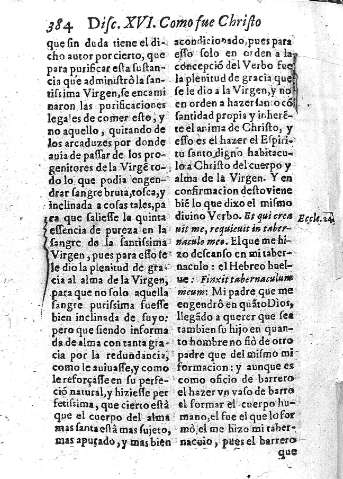 384 Disc. XVI. Como fue Christo
que sin duda tiene el di-
cho autor por cierto, que
para purificar esta sustan-
cia que administrò la san-
tissima Virgen, se encami
naron las purificaciones
legales de comer esto, y
no aquello, quitando de
los arcaduzes por donde
auia de passar de los pro-
genitores de la Virgẽ to-
do lo que podia engen-
drar sangre bruta, tosca, y
inclinada a cosas tales, pa
ra que saliesse la quinta
essencia de pureza en la
sangre de la santissima
Virgen, pues para esso se
le dio la plenitud de gra-
cia al alma de la Virgen,
para que no solo aquella
sangre purissima fuesse
bien inclinada de suyo:
pero que siendo informa
da de alma con tanta gra
cia por la redundancia,
como le auiuasse, y como
le reforçasse en su perfe-
ció natural, y hiziesse per
fetissima, que cierto està
que el cuerpo del alma
mas santa està mas sujeto,
mas apurado, y mas bien
acondicionado, pues para
esso solo en orden a la
concepció del Verbo fue
la plenitud de gracia que
se le dio a la Virgen, y no
en orden a hazer lano có
santidad propia y inherẽ-
te el anima de Christo, y
esso es el hazer el Espiri-
tu santo, digno habitacu-
lo a Christo del cuerpo y
alma de la Virgen. Y en
confirmacion desto viene
bié lo que dixo el mismo
diuino Verbo. Et qui crea
uit me, requieuit in taber-
naculo meo. El que me hi-
zo descanso en mi taber-
naculo: el Hebreo buel-
ue: Finxit tabernaculum
meum: Mi padre que me
engendrò en quãto Dios,
llegãdo a querer que sea
tambien su hijo en quan-
to hombre no fiò de otro
padre que del mismo mi
formacion: y aunque es
como oficio de barrero
el hazer vn vaso de barro
el formar el cuerpo hu-
mano, el fue el que lo for
mò, el me hizo mi taber-
naculo, pues el barrero
que
Eccle. 24.